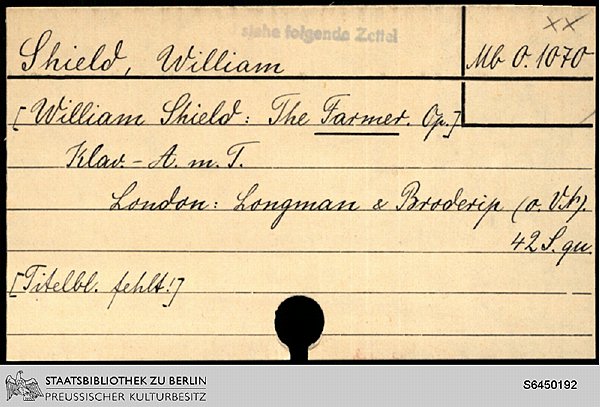 siehe folgende Zettel
××
Shield, William
Mb O. 1070
[William Shield: The Farmer. Op.]
Klav.-A. m. T.
London: Longman & Broderip (o. V.N.).
42 S. qu.
[Titelbl. fehlt!]
STAATSBIBLIOTHEK ZU BERLIN
PREUSSISCHER KULTURBESITZ
S6450192